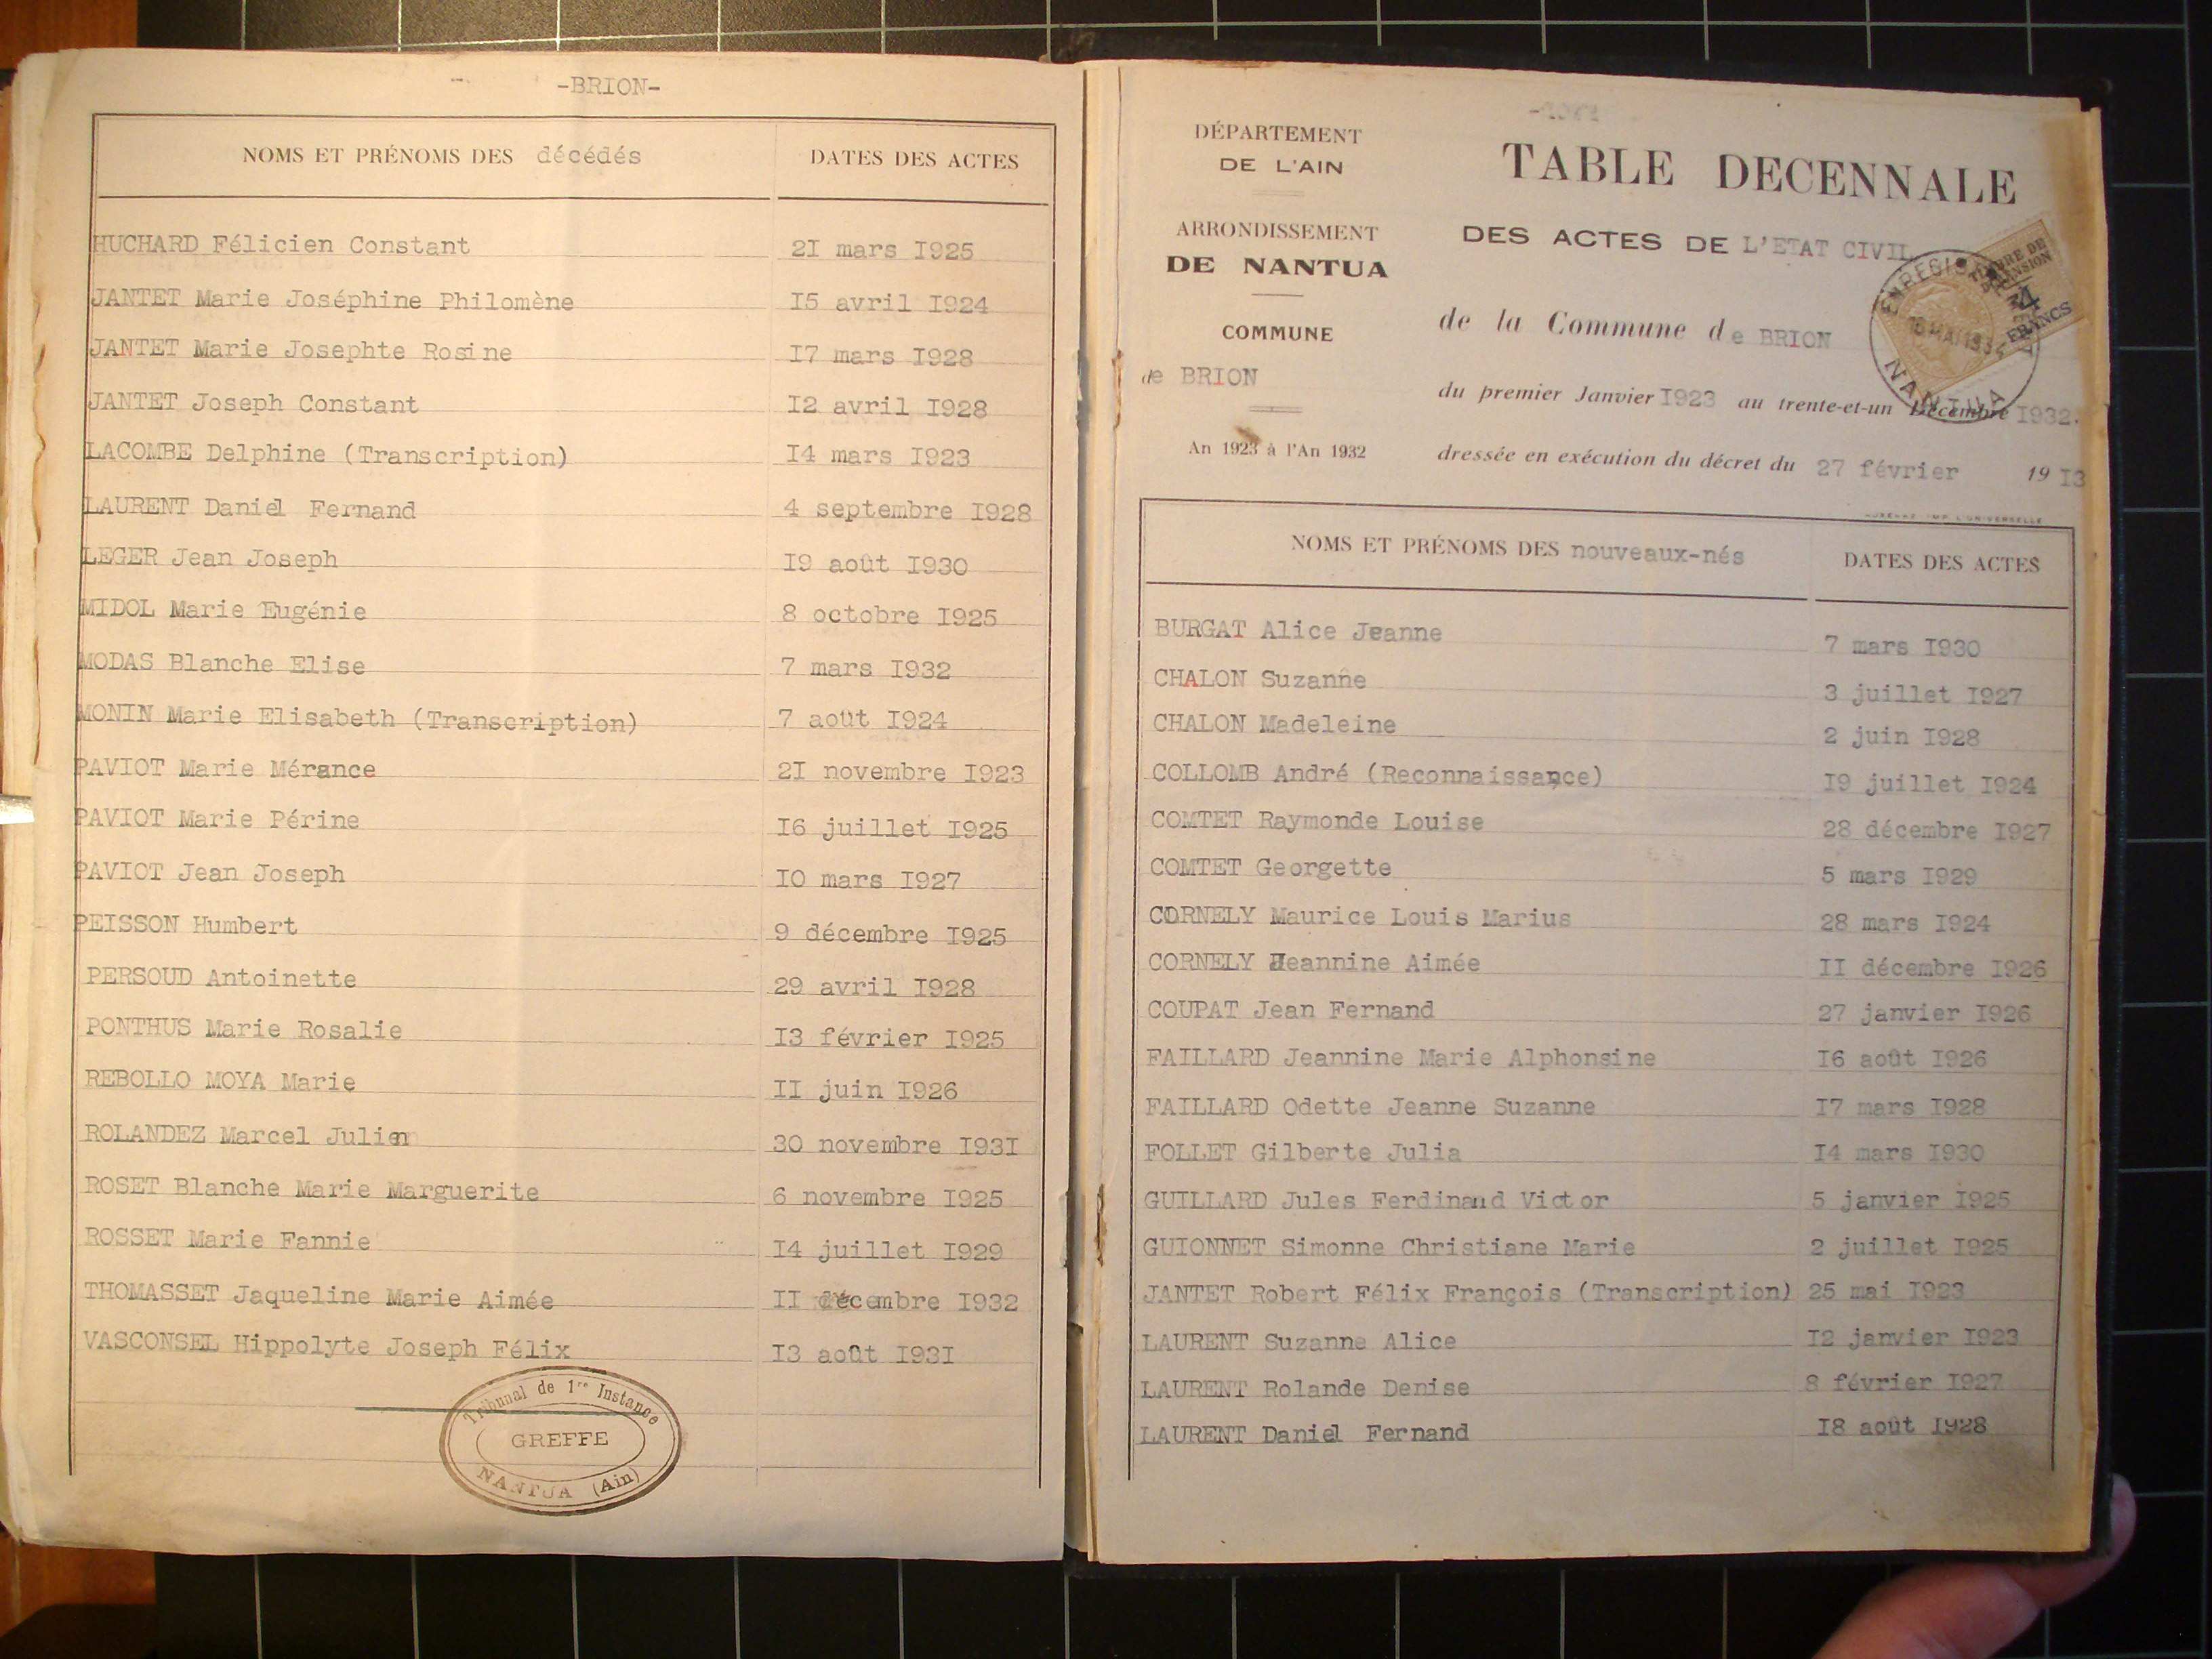 -BRION-
NOMS ET PRÉNOMS DES décédés DATES DES ACTES
HUCHARD Félicien Constant 2I mars I925
JANTET Marie Joséphine Philomène I5 avril I924
JANTET Marie Josephte Rosine I7 mars I928
JANTET Joseph Constant I2 avril I928
LACOMBE Delphine (Transcription) I4 mars I923
LAURENT Daniel Fernand 4 septembre I928
LEGER Jean Joseph I9 août I930
MIDOL Marie Eugénie 8 octobre I925
MODAS Blanche Elise 7 mars I932
MONIN Marie Elisabeth (Transcription) 7 août I924
PAVIOT Marie Mérance 2I novembre I923
PAVIOT Marie Périne I6 juillet I925
PAVIOT Jean Joseph IO mars I927
PEISSON Humbert 9 décembre I925
PERSOUD Antoinette 29 avril I928
PONTHUS Marie Rosalie I3 février I925
REBOLLO MOYA Marie II juin I926
ROLANDEZ Marcel Julien 30 novembre I93I
ROSET Blanche Marie Marguerite 6 novembre I925
ROSSET Marie Fannie I4 juillet I929
THOMASSET Jaqueline Marie Aimée II décembre I932
VASCONSEL Hippolyte Joseph Félix I3 août I93I
Tribunal de 1re Instance
GREFFE
NANTUA (Ain)
DÉPARTEMENT
DE L'AIN
ARRONDISSEMENT
DE NANTUA
COMMUNE
de BRION
An 1923 à l'An 1932
TABLE DECENNALE
DES ACTES DE L'ETAT CIVIL
de la Commune de BRION
du premier Janvier I923 au trente-et-un Décembre I932.
dressée en exécution du décret du 27 février 19 I3
TIMBRE DE
DIMENSION
4
FRANCS
NANTUA
NOMS ET PRÉNOMS DES nouveaux-nés DATES DES ACTES
BURGAT Alice Jeanne 7 mars I930
CHALON Suzanne 3 juillet I927
CHALON Madeleine 2 juin I928
COLLOMB André (Reconnaissance) I9 juillet I924
COMTET Raymonde Louise 28 décembre I927
COMTET Georgette 5 mars I929
CORNELY Maurice Louis Marius 28 mars I924
CORNELY Jeannine Aimée II décembre I926
COUPAT Jean Fernand 27 janvier I926
FAILLARD Jeannine Marie Alphonsine I6 août I926
FAILLARD Odette Jeanne Suzanne I7 mars I928
FOLLET Gilberte Julia I4 mars I930
GUILLARD Jules Ferdinand Victor 5 janvier I925
GUIONNET Simonne Christiane Marie 2 juillet I925
JANTET Robert Félix François (Transcription) 25 mai I923
LAURENT Suzanne Alice I2 janvier I923
LAURENT Rolande Denise 8 février I927
LAURENT Daniel Fernand I8 août I928